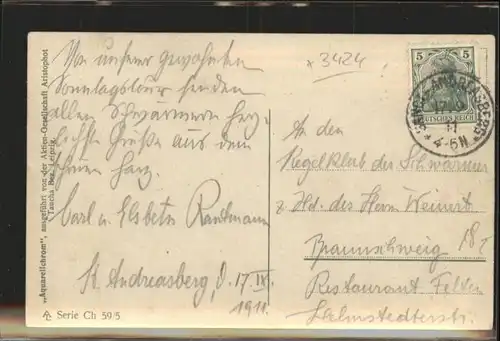 x 3424
Von unserer gewohnten
Sonntagstour senden
allen Schwärmern herz-
lichste Grüße aus dem
schönen Harz.
Carl u. Elsbeth
St. Andreasberg, d. 17. IX.
1911.
„Aquarellchrom“, ausgeführt von der Aktien-Gesellschaft Aristophot
Taucha Bez. Leipzig.
Serie Ch 59/5
5 5
DEUTSCHES REICH
SANCT ANDREASBERG
17.9
11
4-5N
An den
Kegelklub der Schwärmer
z. Hd. des Herrn Weinert
Braunschweig
Restaurant
Helmstedterstr.